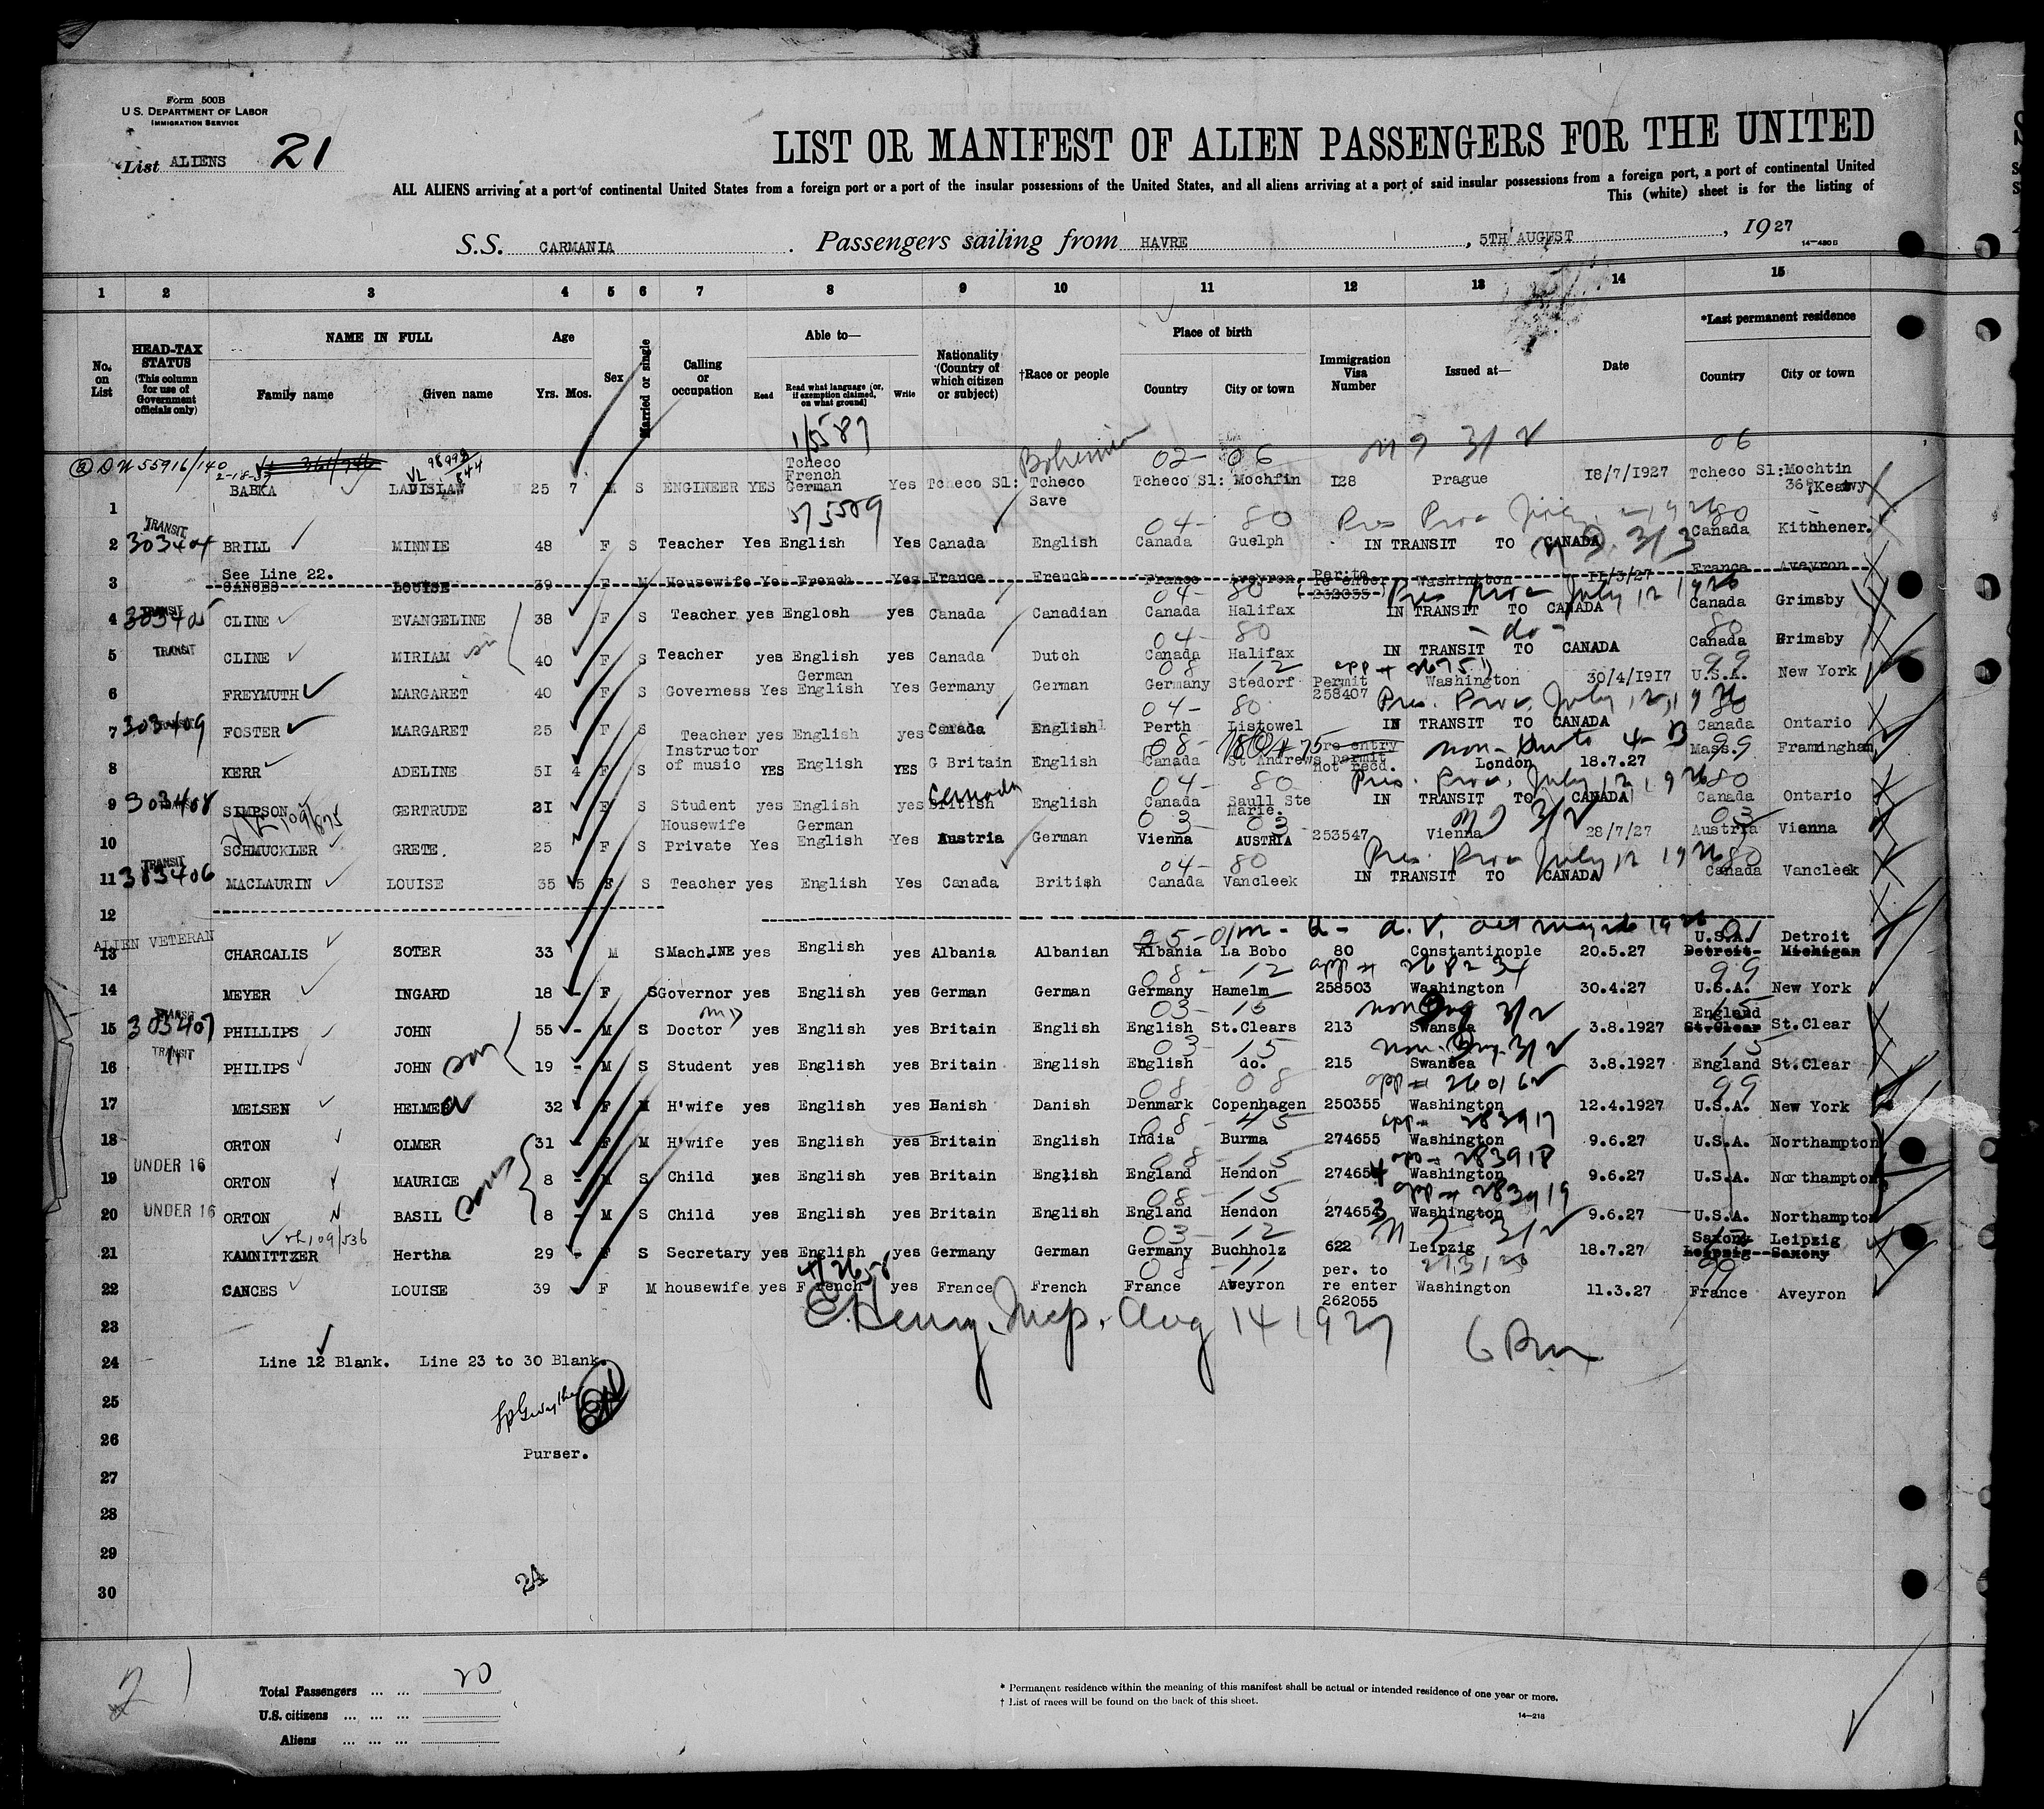 Form 500B
U.S. DEPARTMENT OF LABOR
IMMIGRATION SERVICE
List ALIENS 21
LIST OR MANIFEST OF ALIEN PASSENGERS FOR THE UNITED
ALL ALIENS arriving at a port of continental United States from a foreign port or a port of the insular possessions of the United States, and all aliens arriving at a port of said insular possessions from a foreign port, a port of continental United
This (white) sheet is for the listing of
S.S. CARMANIA . Passengers sailing from HAVRE , 5TH AUGUST , 1927
14-480B
1 2 3 4 5 6 7 8 9 10 11 12 13 14 15
No. on List
HEAD-TAX STATUS (This column for use of Government officials only)
NAME IN FULL
Family name Given name
Age
Yrs. Mos.
Sex
Married or single
Calling or occupation
Able to—
Read Read what language (or, if exemption claimed, on what ground) Write
Nationality (Country of which citizen or subject)
†Race or people
Place of birth
Country City or town
Immigration Visa Number
Issued at—
Date
*Last permanent residence
Country City or town
1/5587
Bohemian 02- 06 06
55916/140 2-18-37 VL
1 BABKA LADISLAV 25 7 M S ENGINEER YES Tcheco French German Yes Tcheco Sl: Tcheco Save Tcheco Sl: Mochtin 128 Prague 18/7/1927 Tcheco Sl: Mochtin
5/5509
TRANSIT 303404 04- 80 80
2 BRILL MINNIE 48 F S Teacher Yes English Yes Canada English Canada Guelph IN TRANSIT TO CANADA Canada Kithhener.
See Line 22.
3 CANCES LOUISE 39 F M Housewife Yes French Yes France French France Aveyron Per to re enter 262055 Washington 11/3/27 France Aveyron
TRANSIT 303405 04- 80 Pres Proc July 12 1926
4 CLINE EVANGELINE 38 F S Teacher yes Englosh yes Canada Canadian Canada Halifax IN TRANSIT TO CANADA Canada Grimsby
TRANSIT 04- 80 - do - 80
5 CLINE MIRIAM 40 F S Teacher yes English yes Canada Dutch Canada Halifax IN TRANSIT TO CANADA Canada Grimsby
08 12 99
6 FREYMUTH MARGARET 40 F S Governess Yes German English Yes Germany German Germany Stedorf Permit 258407 Washington 30/4/1917 U.S.A. New York
303409 04- 80 Pres. Proc. July 12, 1926 80
7 FOSTER MARGARET 25 F S Teacher yes English yes Canada English Perth Listowel IN TRANSIT TO CANADA Canada Ontario
08- non-Quota 4-D 99
8 KERR ADELINE 51 4 F S Instructor of music YES English YES G Britain English Canada St Andrews re entry permit not recd. London 18.7.27 Mass. Framingham
303408 Canada 04- 80 Pres. Proc. July 12, 1926 80
9 SIMPSON GERTRUDE 21 F S Student yes English yes British English Canada Saull Ste Marie. IN TRANSIT TO CANADA Canada Ontario
03- 03 03
10 SCHMUCKLER GRETE. 25 F S Housewife Private Yes German English Yes Austria German Vienna AUSTRIA 253547 Vienna 28/7/27 Austria Vienna
TRANSIT 303406 04- 80 Pres. Proc July 12 1926 80
11 MACLAURIN LOUISE 35 5 F S Teacher yes English Yes Canada British Canada Vancleek IN TRANSIT TO CANADA Canada Vancleek
12
ALIEN VETERAN
13 CHARCALIS ZOTER 33 M S Mach.INE yes English yes Albania Albanian Albania La Bobo 80 Constantinople 20.5.27 U.S.A. Detroit Detroit- Michigan
08- 12 app # 268234 99
14 MEYER INGARD 18 - F S Governor yes English yes German German Germany Hamelm 258503 Washington 30.4.27 U.S.A. New York
TRANSIT 303407 03- 15 15
15 PHILLIPS JOHN 55 - M S Doctor yes English yes Britain English English St.Clears 213 Swansea 3.8.1927 England St.Clear St.Clear
TRANSIT 11 03- 15 15
16 PHILIPS JOHN son 19 - M S Student yes English yes Britain English English do. 215 Swansea 3.8.1927 England St.Clear
08 08 99
17 MELSEN HELMER 32 F M H'wife yes English yes Hanish Danish Denmark Copenhagen 250355 Washington 12.4.1927 U.S.A. New York
08- 45 app- 283917
18 ORTON OLMER 31 - F M H'wife yes English yes Britain English India Burma 274655 Washington 9.6.27 U.S.A. Northampton
UNDER 16 08- 15 app- 283918
19 ORTON MAURICE sons 8 - M S Child yes English yes Britain English England Hendon 274654 Washington 9.6.27 U.S.A. Northampton
UNDER 16 08- 15 app # 283919
20 ORTON BASIL 8 - M S Child yes English yes Britain English England Hendon 274653 Washington 9.6.27 U.S.A. Northampton
109/536 03- 12
21 KAMNITTZER Hertha 29 - F S Secretary yes English yes Germany German Germany Buchholz 622 Leipzig 18.7.27 Saxony Leipzig Leipzig--Saxony
08- 11 99
22 CANCES LOUISE 39 F M housewife yes French yes France French France Aveyron per. to re enter 262055 Washington 11.3.27 France Aveyron
23 E. Henry, Insp. Aug 14 1927 6 Pm
24 Line 12 Blank. Line 23 to 30 Blank.
25
26 Purser.
27
28
29
30
24
21
Total Passengers ... ... 20
U.S. citizens ... ... ...
Aliens ... ... ...
* Permanent residence within the meaning of this manifest shall be actual or intended residence of one year or more.
† List of races will be found on the back of this sheet.
14-218